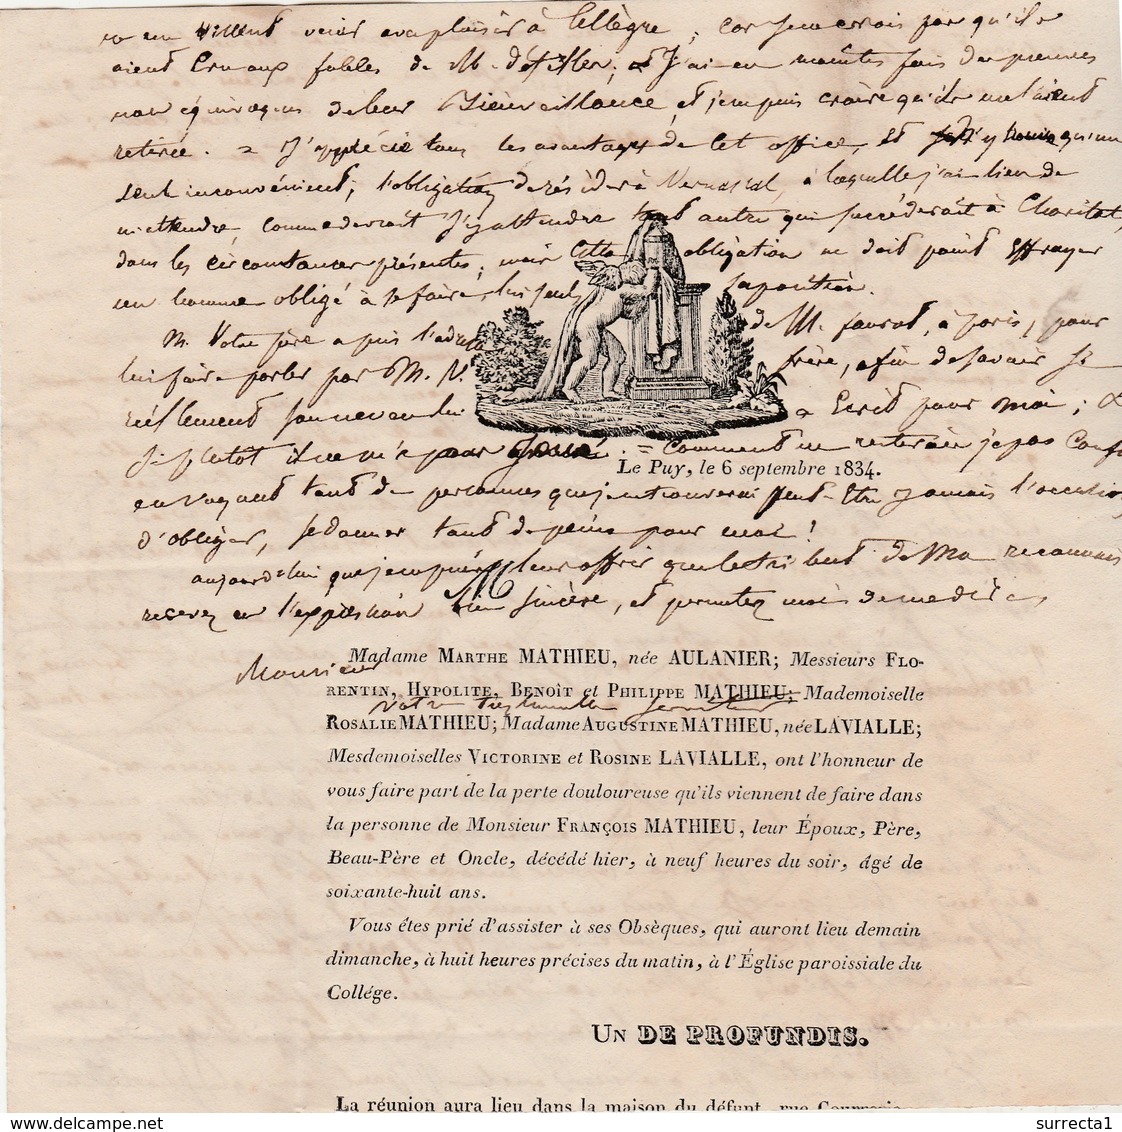 venir avec plaisir à Allègre, car je ne crois pas qu'ils
aient cru aux fables de M. J'ai eu maintes fois des preuves
non équivoques de leur Bienveillance, et je ne puis croire qu'ils me l'aient
retirée. = J'apprécie tous les avantages de cet office, et j'y trouve qu'un
seul inconvénient, l'obligation de résider à à laquelle j'ai lieu de
m'attendre, comme devrait s'y attendre tout autre qui succéderait à
dans les circonstances présentes, mais cette obligation ne doit point effrayer
un homme obligé à se faire, lui seul, sa position.
M. Votre père a pris l'adresse de M. à paris, pour
lui faire parler par M. frère, afin de savoir si
réellement a Ecrit pour moi;
en voyant tant de personnes que je ne trouverai peut-être jamais l'occasion
d'obliger, se donner tant de peine pour moi!
aujourd'hui que je ne puis leur offrir que le tribut de Ma
recevez en l'expression bien sincère, et permettez moi de me dire
Monsieur
votre très humble serviteur
Le Puy, le 6 septembre 1834.
M
Madame Marthe MATHIEU, née AULANIER; Messieurs Flo-
rentin, Hypolite, Benoît et Philippe MATHIEU; Mademoiselle
Rosalie MATHIEU; Madame Augustine MATHIEU, née LAVIALLE;
Mesdemoiselles Victorine et Rosine LAVIALLE, ont l'honneur de
vous faire part de la perte douloureuse qu'ils viennent de faire dans
la personne de Monsieur François MATHIEU, leur Époux, Père,
Beau-Père et Oncle, décédé hier, à neuf heures du soir, âgé de
soixante-huit ans.
Vous êtes prié d'assister à ses Obsèques, qui auront lieu demain
dimanche, à huit heures précises du matin, à l'Église paroissiale du
Collége.
Un DE PROFUNDIS.
La réunion aura lieu dans la maison du défunt, rue
surrecta1